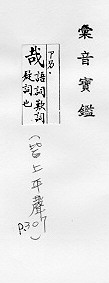 彙音寶鑑
哉 語詞歎詞
疑詞也
(皆上平聲)
p.307